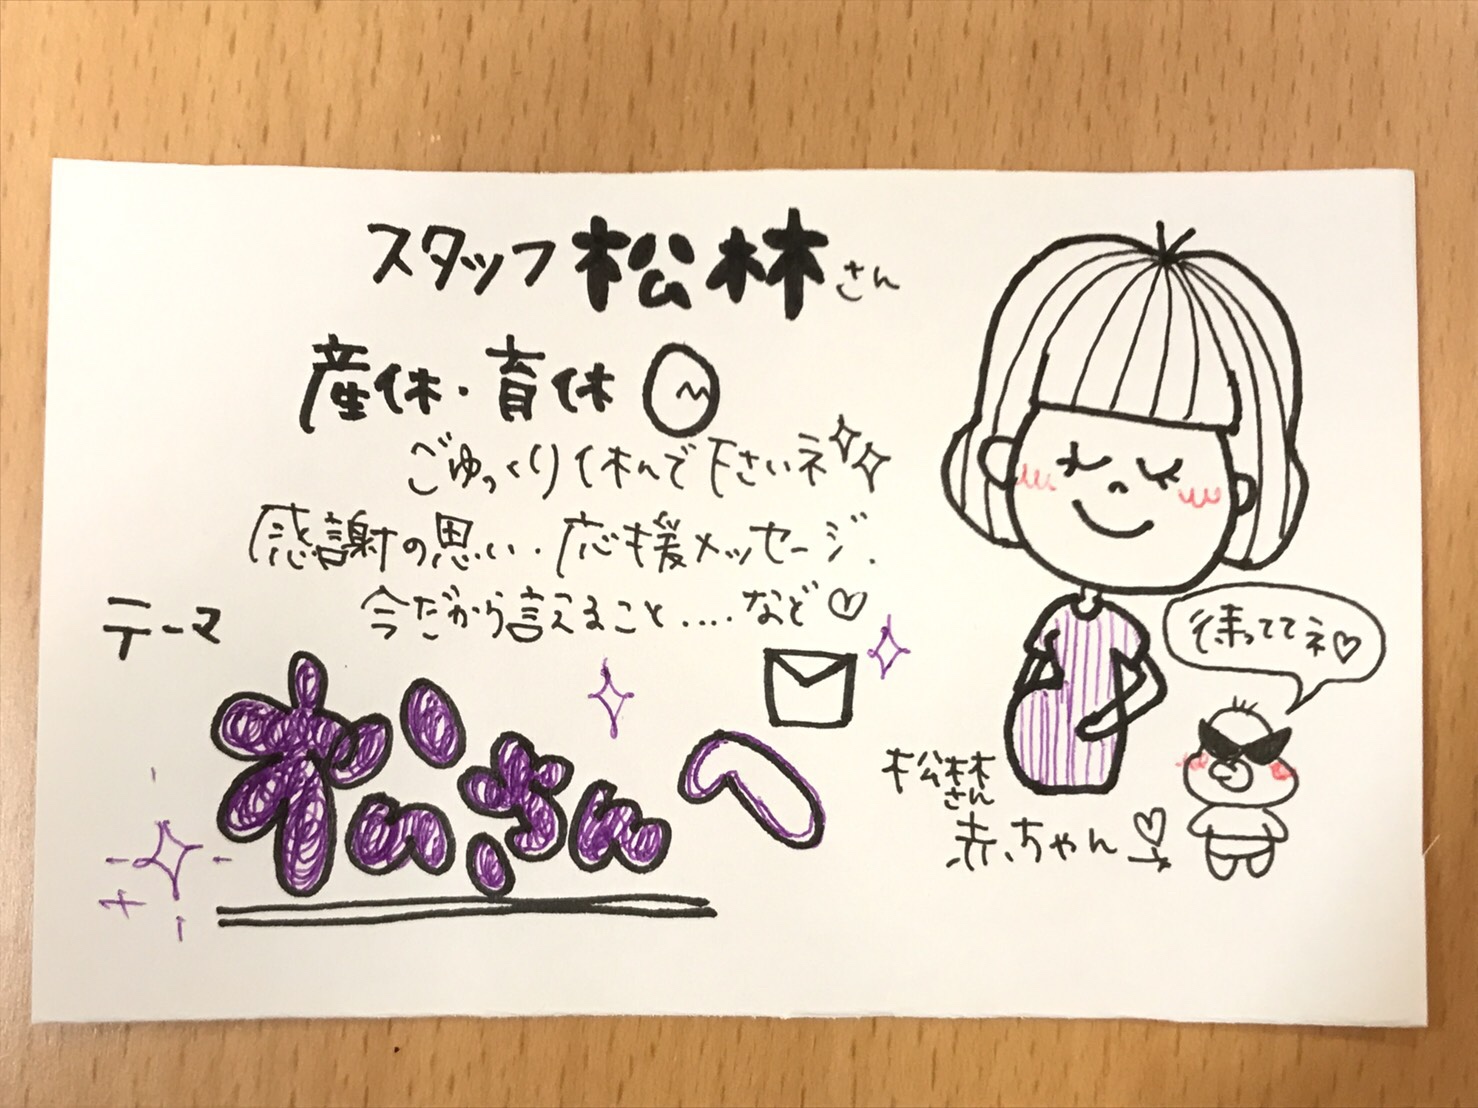 スタッフ松林さん
産休・育休
ごゆっくり休んで下さいネ
感謝の思い・応援メッセージ・
今だから言えること....など♡
テーマ
松ちゃんへ
待っててネ♡
松林さん
赤ちゃん